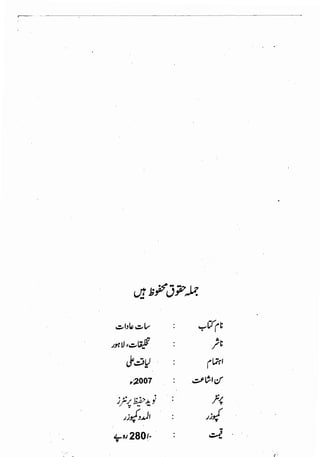 جملہ حقوق محفوظ ہیں
نام کتاب : سات عادات
ناشر : تخلیقات، لاہور
اہتمام : لیاقت علی
سن اشاعت : 2007ء
پرنٹر : نوید حفیظ پرنٹرز
کمپوزر : المدد کمپوزرز
قیمت : -/280 روپے